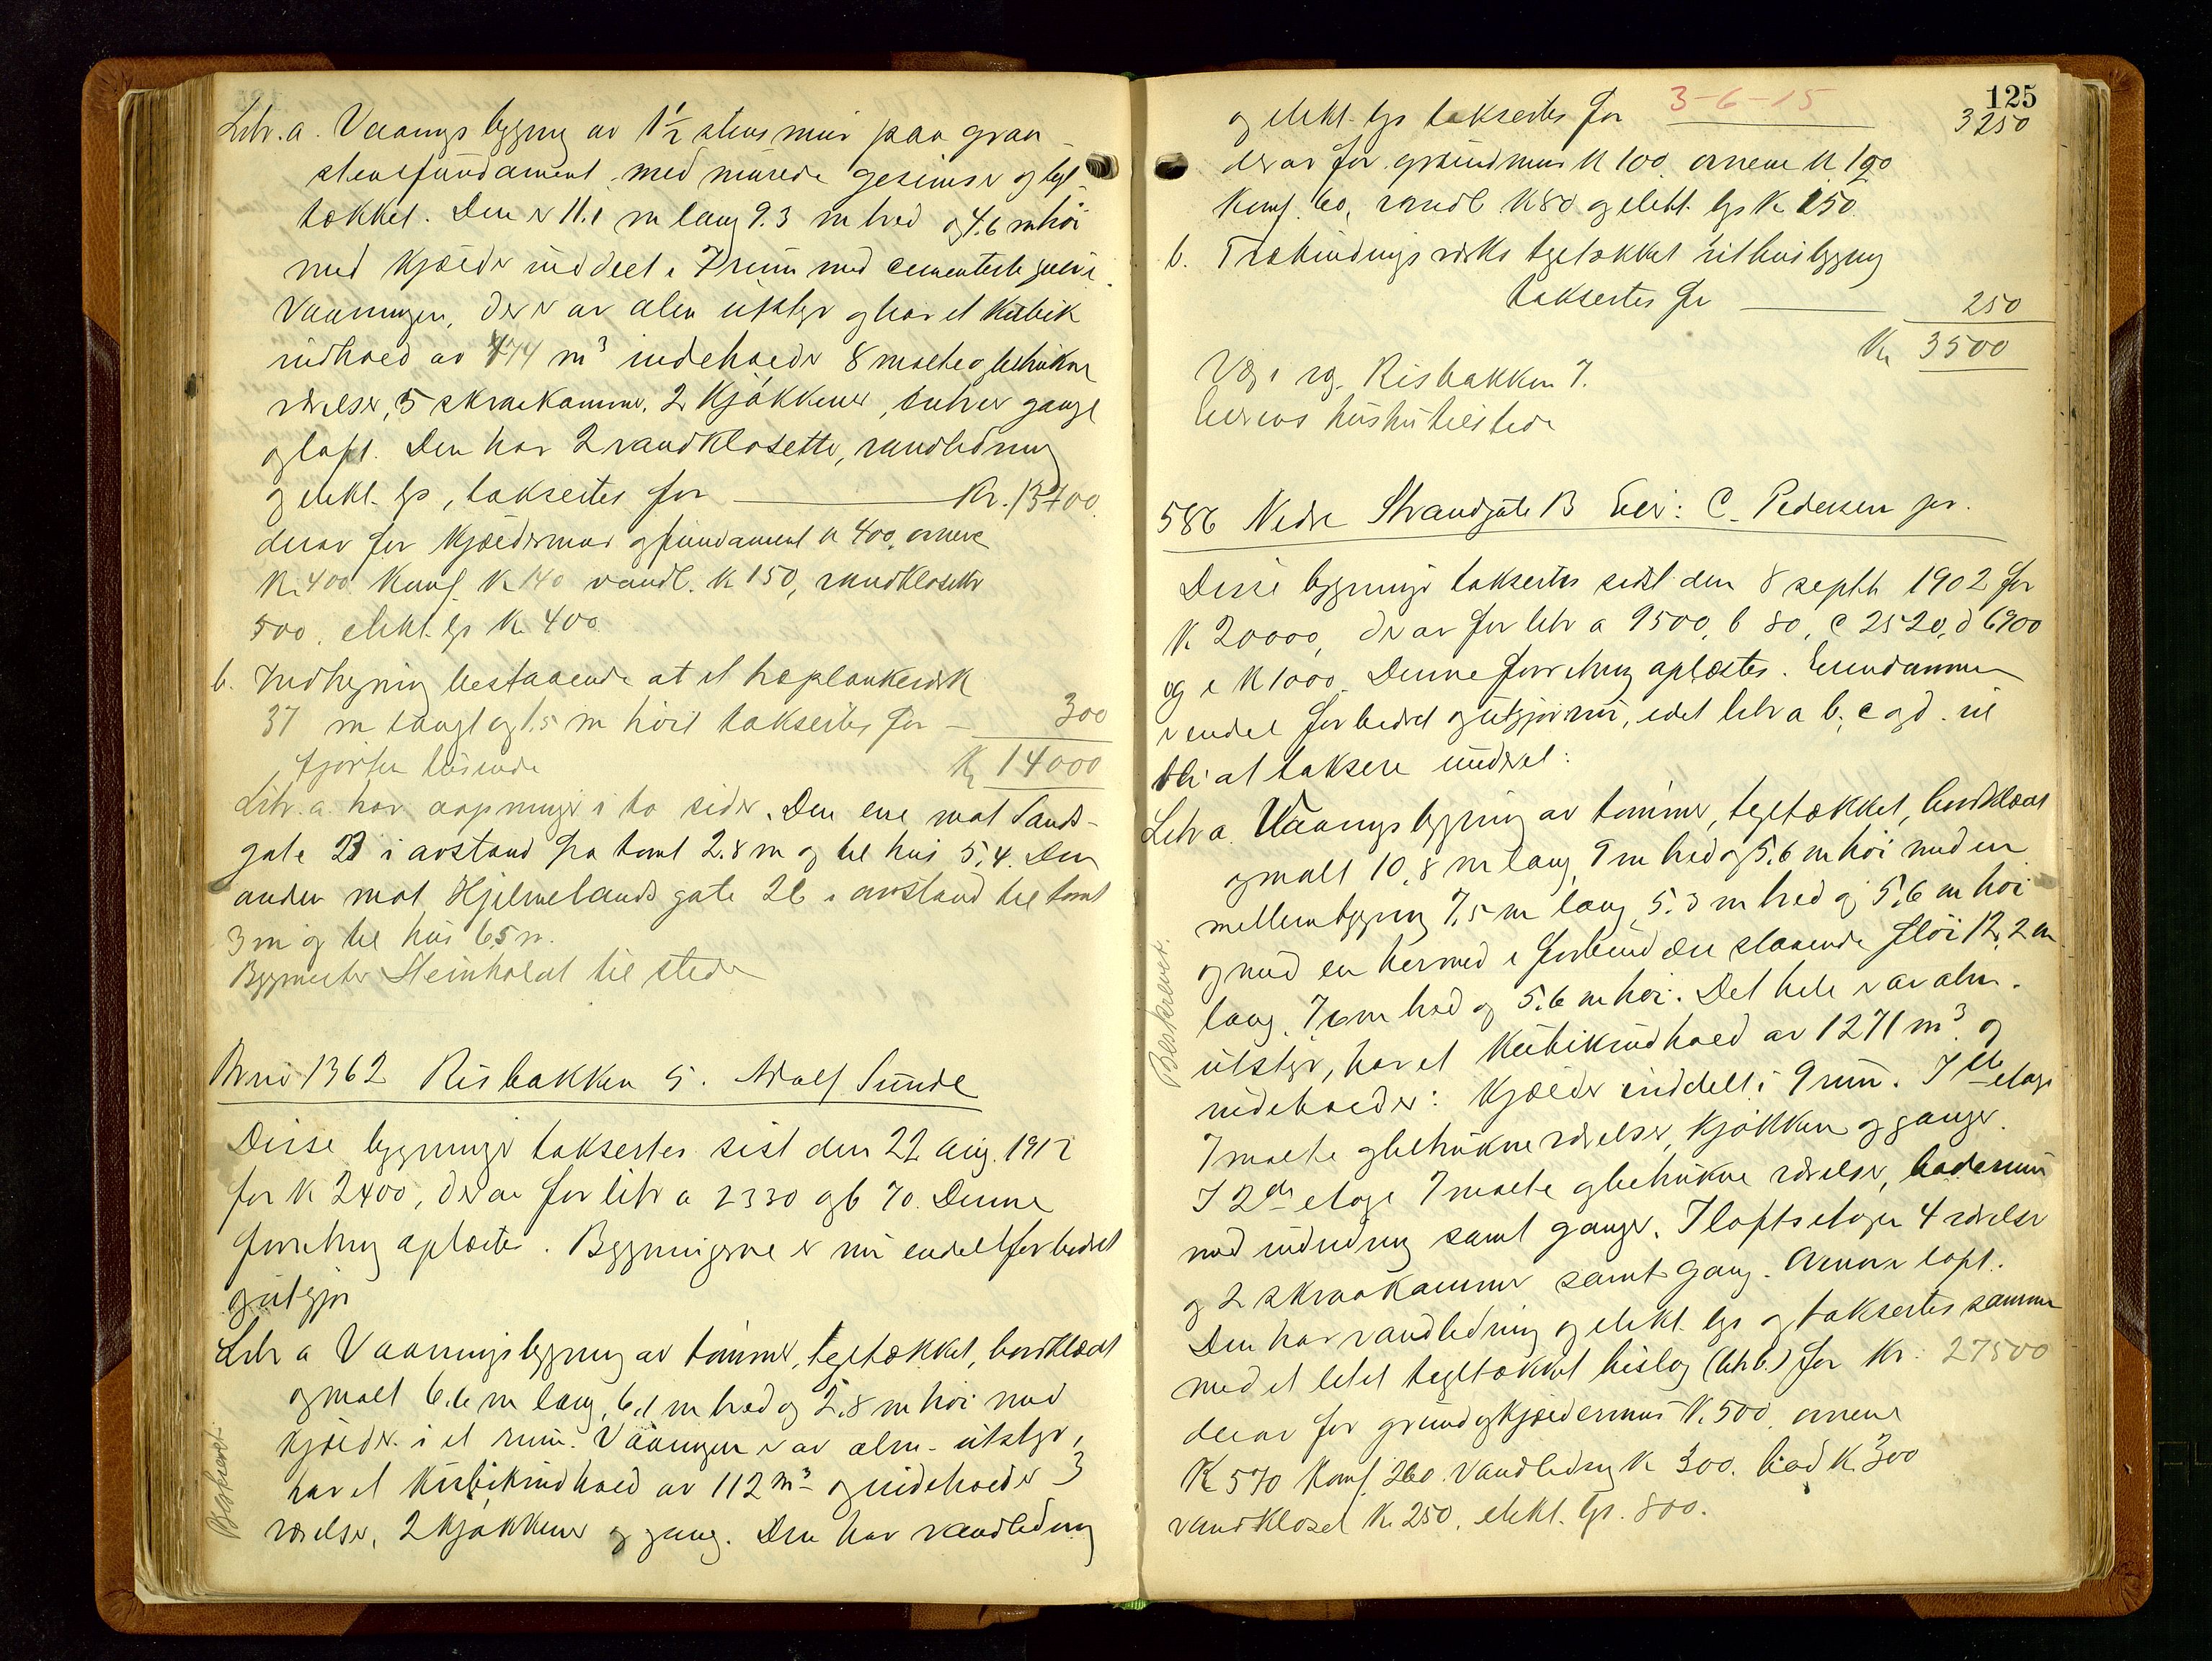 Litr. a. Vaaningsbygning av 1½ stens mur paa graa-
stensfundament med murede gesimser og tegl-
tækket. Den er 11.1 m lang 9.3 m bred og 4.6 m høi
med kjælder inddelt i 7 rum med cementerte gulv i
Vaaningen, der er av alm utstyr og har et kubik
indhold av 474 m³ indeholder 8 malte og betrukne
værelser, 5 skraakammer, 2 kjøkkener, entreer gange
og loft. Den har 2 vandklosetter, vandledning
og elekt. lys, taksertes for Kr. 13700.
derav for kjældermur og fundament K 400, ovnene
K. 400 Komf. K 140 vandl. K 150, vandklosetter
500, elekt. lys K. 400.
b. Indhegning bestaaende at et træplankeverk
37 m langt og 1.5 m høit taksertes for — 300
fjorten tusinde Kr 14000
Litr. a. har aapninger i to sider. Den ene mot Sands-
gate 23 i avstand fra tomt 2.8 m og til hus 5.4. Den
anden mot Hjelmelands gate 26 i avstand til tomt
3 m og til hus 6.5 m.
Bygmester Steinholdt til stede
Br no 1362 Risbakken 5. Adolf Sunde
Disse bygninger taksertes sist den 22 aug. 1912
for K 2400, derav for litr a 2330 og b 70. Denne
forretning oplæstes. Bygningerne er nu endel forbedret
og utgjør
Litr a Vaaningsbygning av tømmer, tegltækket, bordklædt
og malt 6.6 m lang, 6.1 m bred og 2.8 m høi med
kjælder i et rum. Vaaningen er av alm. utstyr,
har et kubikindhold av 112 m³ og indeholder 3
værelser, 2 kjøkkener og gang. Den har vandledning
Beskrevet.
125
og elekt. lys taksertes for 3-6-15 3250
derav for grundmur K 100. ovnene K 190
Komf. 60, vandl. K 80 og elekt. lys K 150.
b. Træbindingsverks tegltækket uthusbygning
taksertes for 250
Kr 3500
Væg i væg. Risbakken 7.
Eierens hustru tilstede
586 Nedre Strandgate 13 Eier: C. Pedersen jr.
Disse bygninger taksertes sidst den 8 septbr 1902 for
K 20000, derav for litr a 9500, b 80, c 2520, d 6900
og e K 1000. Denne forretning oplæstes. Eiendommen
er endel forbedret og utgjør nu, idet litr a b, c og d. vil
bli at taksere under et:
Litr a. Vaaningsbygning av tømmer, tegltækket, bordklædt
og malt 10.8 m lang, 9 m bred og 5.6 m høi med en
mellembygning 7.5 m lang, 5.3 m bred og 5.6 m høi
og med en hermed i forbindelse staaende fløi 12.2 m
lang, 7.6 m bred og 5.6 m høi. Det hele er av alm.
utstyr, har et kubikindhold av 1271 m³ og
indeholder: Kjælder inddelt i 9 rum. I 1ste etage
7 malte og betrukne værelser, kjøkken og ganger.
I 2den etage 7 malte og betrukne værelser, baderum
med indredning samt ganger. I loftsetagen 4 værelser
og 2 skraakammer samt gang. Ovenover loft.
Den har vandledning og elekt. lys og taksertes sammen
med et litet tegltækket bislag (litr b.) for Kr. 27500
derav for grund og kjældermur K. 500, ovnene
K 570 Komf. 260. Vandledning K 300. bad K. 300
vandkloset K. 250, elekt. lys. 800.
Beskrevet.